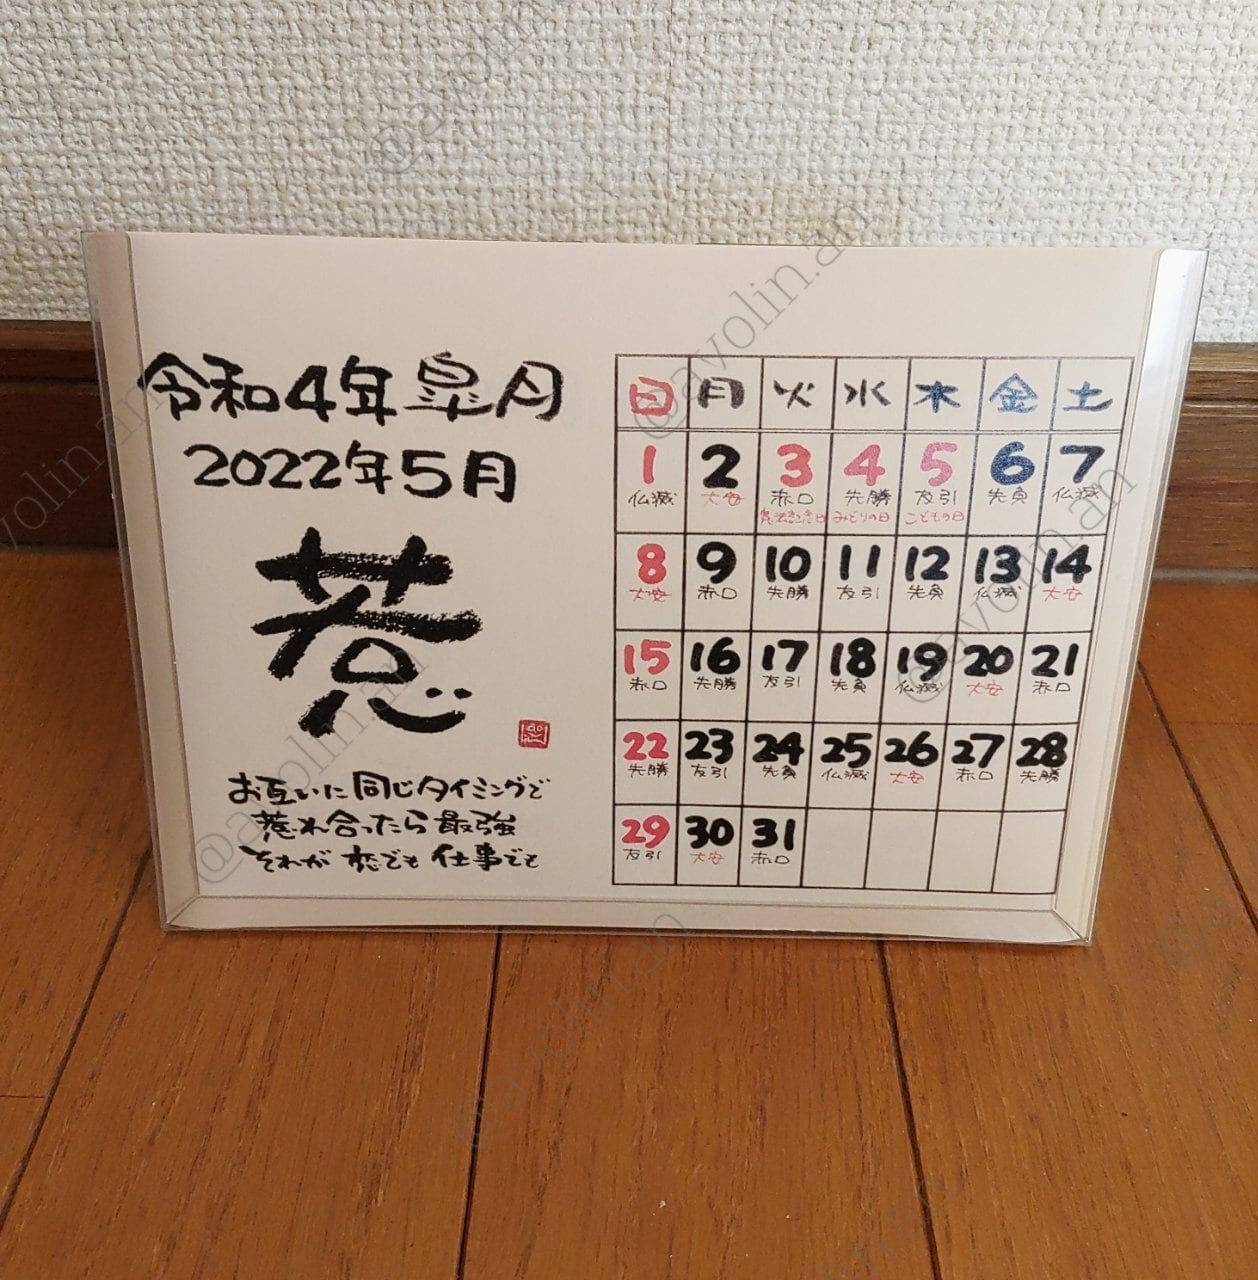 令和4年皐月
2022年5月
惹
お互いに同じタイミングで
惹れ合ったら最強
それが恋でも仕事でも
日 月 火 水 木 金 土
1 2 3 4 5 6 7
仏滅 大安 赤口 先勝 友引 先負 仏滅
憲法記念日 みどりの日 こどもの日
8 9 10 11 12 13 14
大安 赤口 先勝 友引 先負 仏滅 大安
15 16 17 18 19 20 21
赤口 先勝 友引 先負 仏滅 大安 赤口
22 23 24 25 26 27 28
先勝 友引 先負 仏滅 大安 赤口 先勝
29 30 31
友引 大安 赤口
@avolin.an